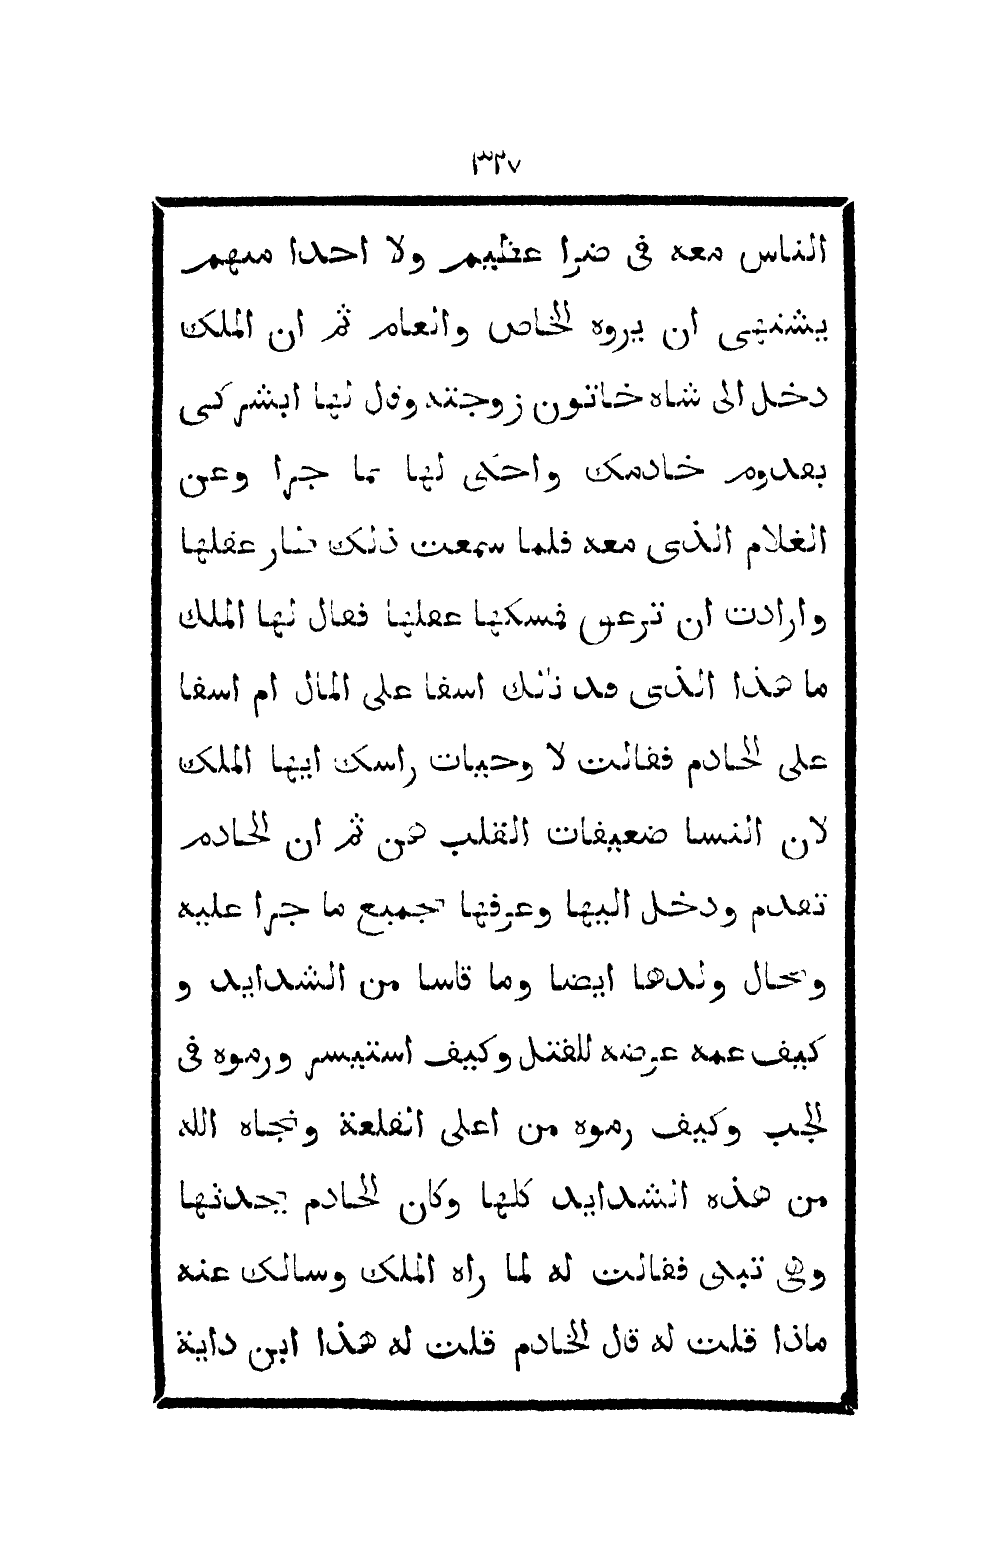 ٣٢٧
الناس معه فى ضرا عظيم ولا احدا منهم
يشتهى ان يروه الخاص والعام ثم ان الملك
دخل الى شاه خاتون زوجته وقال لها ابشركى
بقدوم خادمك واحكى لها بما جرا وعن
الغلام الذى معه فلما سمعت ذلك طار عقلها
وارادت ان تزعق فمسكها عقلها فقال لها الملك
ما هذا الذى قد نالك اسفا على المال ام اسفا
على الخادم فقالت لا وحيات راسك ايها الملك
لان النسا ضعيفات القلب هن ثم ان الخادم
تقدم ودخل اليها وعرفها بجميع ما جرا عليه
وبحال ولدها ايضا وما قاسا من الشدايد و
كيف عمه عرضه للقتل وكيف استيسر ورموه فى
الجب وكيف رموه من اعلى القلعة ونجاه الله
من هذه الشدايد كلها وكان الخادم يحدثها
وهى تبكى فقالت له لما راه الملك وسالك عنه
ماذا قلت له قال الخادم قلت له هذا ابن داية